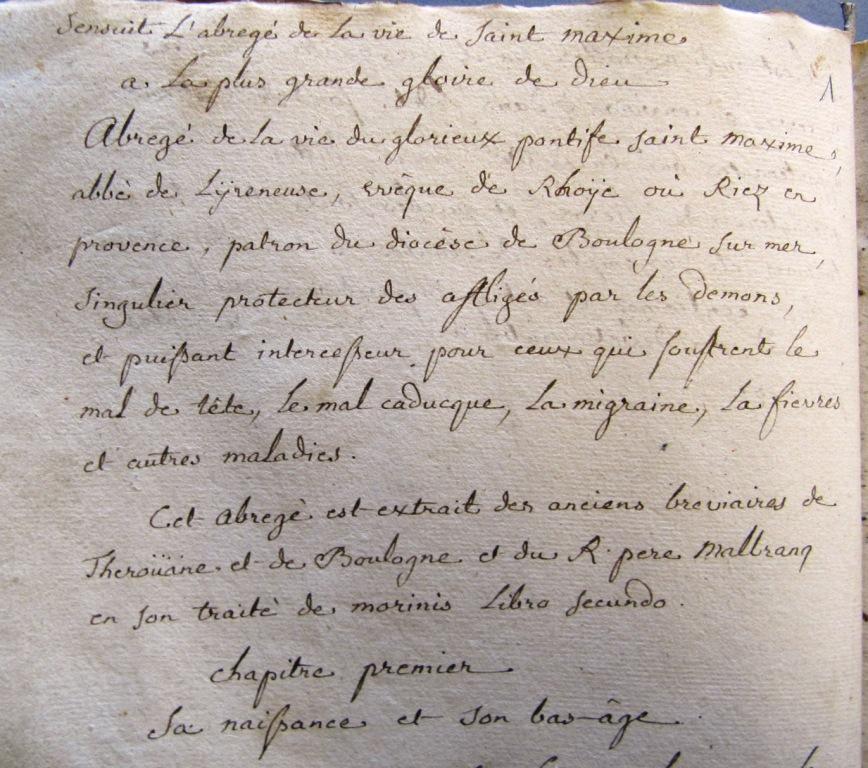 Sensuit L'abregé de La vie de saint maxime
a La plus grande gloire de dieu
1
Abregé de La vie du glorieux pontife saint maxime,
abbé de Lÿreneuse, evêque de Rhoÿe où Riez en
provence, patron du diocèse de Boulogne sur mer,
singulier protecteur des affligés par les demons,
et puissant intercesseur pour ceux qui souffrent le
mal de tête, le mal caducque, La migraine, La fievres
et autres maladies.
Cet Abregè est extrait des anciens breviaires de
Theroüane et de Boulogne et du R. pere Mallranq
en son traité de morinis Libro secundo.
chapitre premier
Sa naissance et son bas-âge.